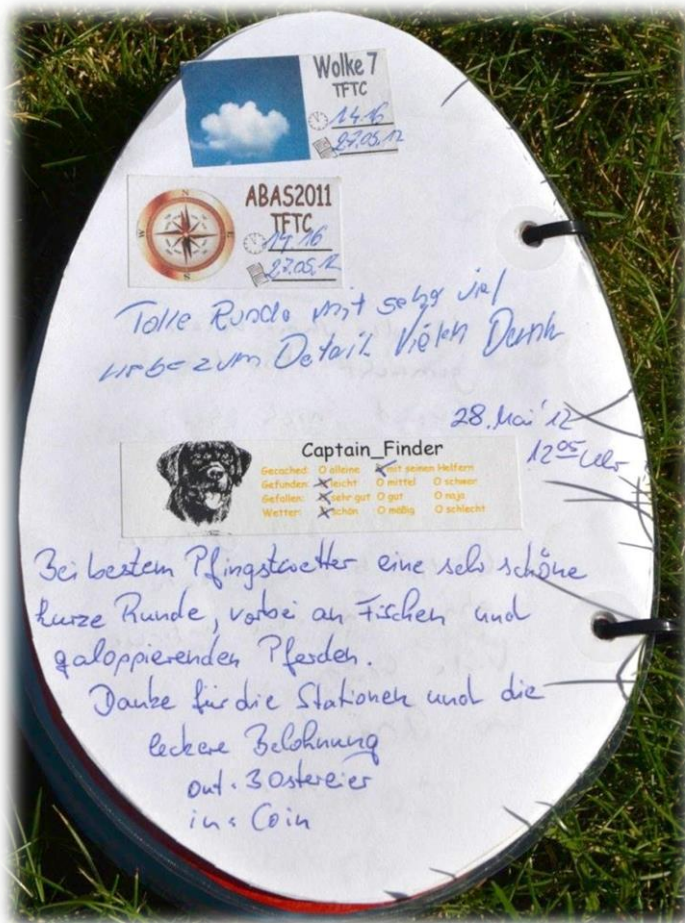 Wolke 7
TFTC
14 16
27.05.12
ABAS2011
TFTC
14 16
27.05.12
Tolle Runde mit sehr viel
Liebe zum Detail Vielen Dank
28. Mai '12
12 05 Uhr
Captain_Finder
Gecached: O alleine O mit seinen Helfern
Gefunden: O leicht O mittel O schwer
Gefallen: O sehr gut O gut O naja
Wetter: O schön O mäßig O schlecht
Bei bestem Pfingstwetter eine sehr schöne
kurze Runde, vorbei an Fischen und
galoppierenden Pferden.
Danke für die Stationen und die
leckere Belohnung
out: 3 Ostereier
in: Coin